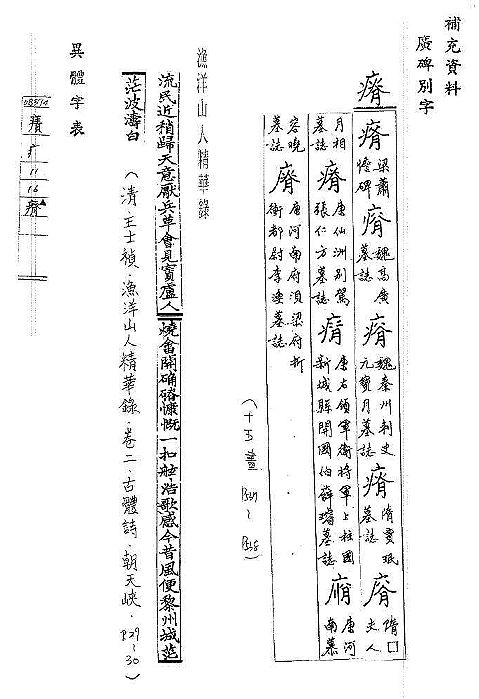 補充資料
廣碑別字
瘠
瘠 梁蕭憺碑 瘠 魏高廣墓誌 瘠 魏秦州刺史元寶月墓誌 瘠 隋賈珉墓誌 瘠 隋□夫人
墓誌 瘠 唐仙洲別駕張仁方墓誌 瘠 唐右領軍衛將軍上柱國新城縣開國伯薛璿墓誌 唐河南慕
容曉墓誌 唐河南府湏梁府折衝都尉李渙墓誌
(十五畫
漁洋山人精華錄
流民近稍歸天意厭兵革會見賨盧人燒畬開确磽慷慨一扣舷浩歌感今昔風便黎州城茫
茫波濤白
(清.王士禎.漁洋山人精華錄.卷二.古體詩.朝天峽.P29~30)
異體字表
瘠
疒
11
16